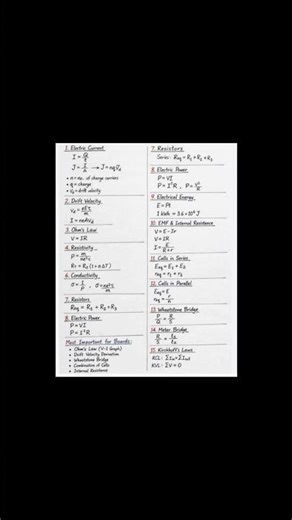 1. Electric Current
I = Q/t
J = I/A → J = nqVd
• n = no. of charge carriers
• q = charge
• Vd = drift velocity
2. Drift Velocity
I = neAVd
3. Ohm's Law
V = IR
4. Resistivity
6. Conductivity
7. Resistors
Req = R1 + R2 + R3
8. Electric Power
P = VI
P = I²R
Most Important for Boards:
• Ohm's Law (V-I Graph)
• Drift Velocity Derivation
• Wheatstone Bridge
• Combination of Cells
• Internal Resistance
7. Resistors
Series: Req = R1 + R2 + R3
8. Electric Power
P = VI
P = I²R , P = V²/R
9. Electrical Energy
E = Pt
1 kWh = 3.6 × 10⁶ J
10. EMF & Internal Resistance
V = E - Ir
V = IR
I = E/R+r
11. Cells in Series
Eeq = E1 + E2
req = r1 + r2
12. Cells in Parallel
13. Wheatstone Bridge
P/Q = R/S
14. Meter Bridge
15. Kirchhoff's Laws
KVL: ΣV = 0